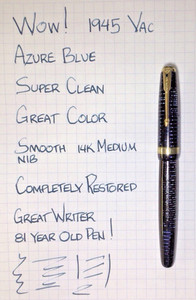 Wow! 1945 Vac
Azure Blue
Super Clean
Great Color
Smooth 14K Medium
Nib
Completely Restored
Great Writer
81 Year Old Pen!